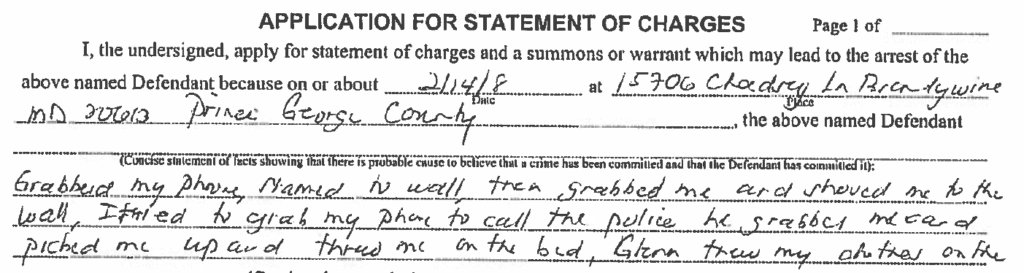 APPLICATION FOR STATEMENT OF CHARGES Page 1 of
I, the undersigned, apply for statement of charges and a summons or warrant which may lead to the arrest of the
above named Defendant because on or about 2/14/8 at 15706 Ln Brandywine
Date Place
MD 20613 Prince George County, the above named Defendant
(Concise statement of facts showing that there is probable cause to believe that a crime has been committed and that the Defendant has committed it):
Grabbed my phone, to wall, then grabbed me and shoved me to the
wall, I tried to grab my phone to call the police he grabbed me and
picked me up and threw me on the bed, Glenn threw my clothes on the